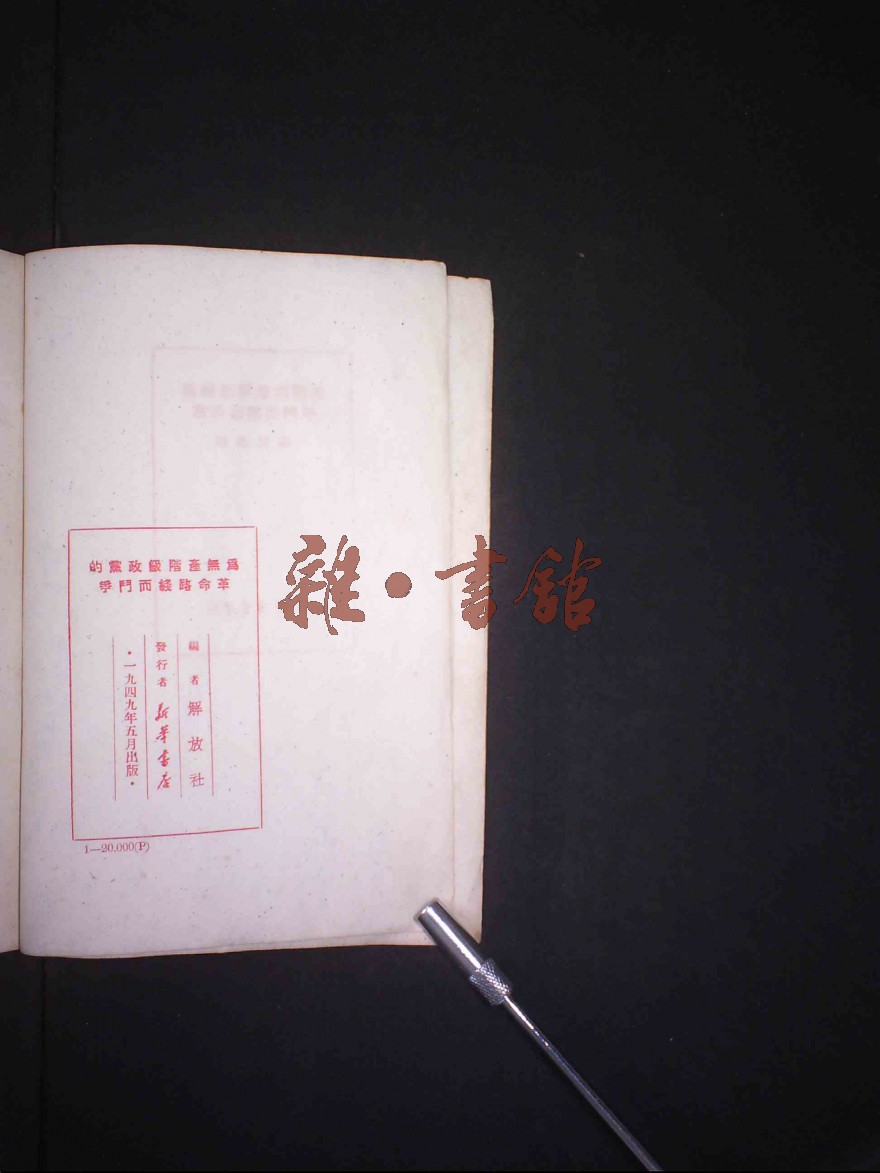 爲無產階級政黨的
革命路綫而鬥爭
編者 解放社
發行者 新華書店
·一九四九年五月出版·
1—20,000(P)
雜·書館